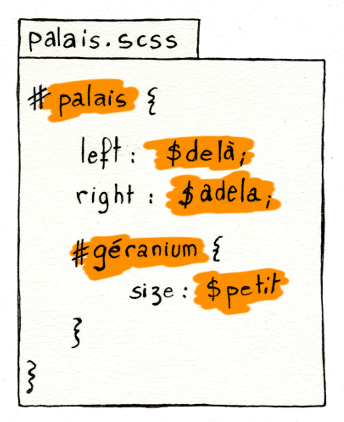 palais.scss
#palais {
left: $delà;
right: $adela;
#géranium {
size: $petit
}
}